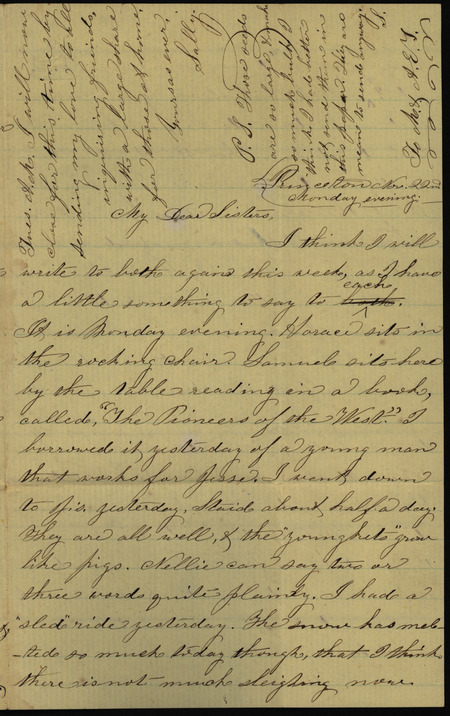 Princeton Nov. 22nd
Monday evening.
My Dear Sisters,
I think I will
write to both again this week, as I have
a little something to say to both each.
It is Monday evening. Horace sits in
the rocking chair. Samuel sits here
by the table reading in a book,
called, "The Pioneers of the West." I
borrowed it yesterday of a young man
that works for Jesse. I went down
to J's. yesterday, Staid about half a day.
They are all well, & the "youngkets" grow
like pigs. Nellie can say two or
three words quite plainly. I had a
"sled" ride yesterday. The snow has mel-
-ted so much today though, that I think
there is not much sleighing now.
I will now
close for this time by
sending my love to all
inquiring friends,
with a large share
for those at home.
Yours as ever.
Sally.
P.S. Those
are so large &
so much
think I had better
not send them in
this paper. They are
mean to send anyway.
S.
To